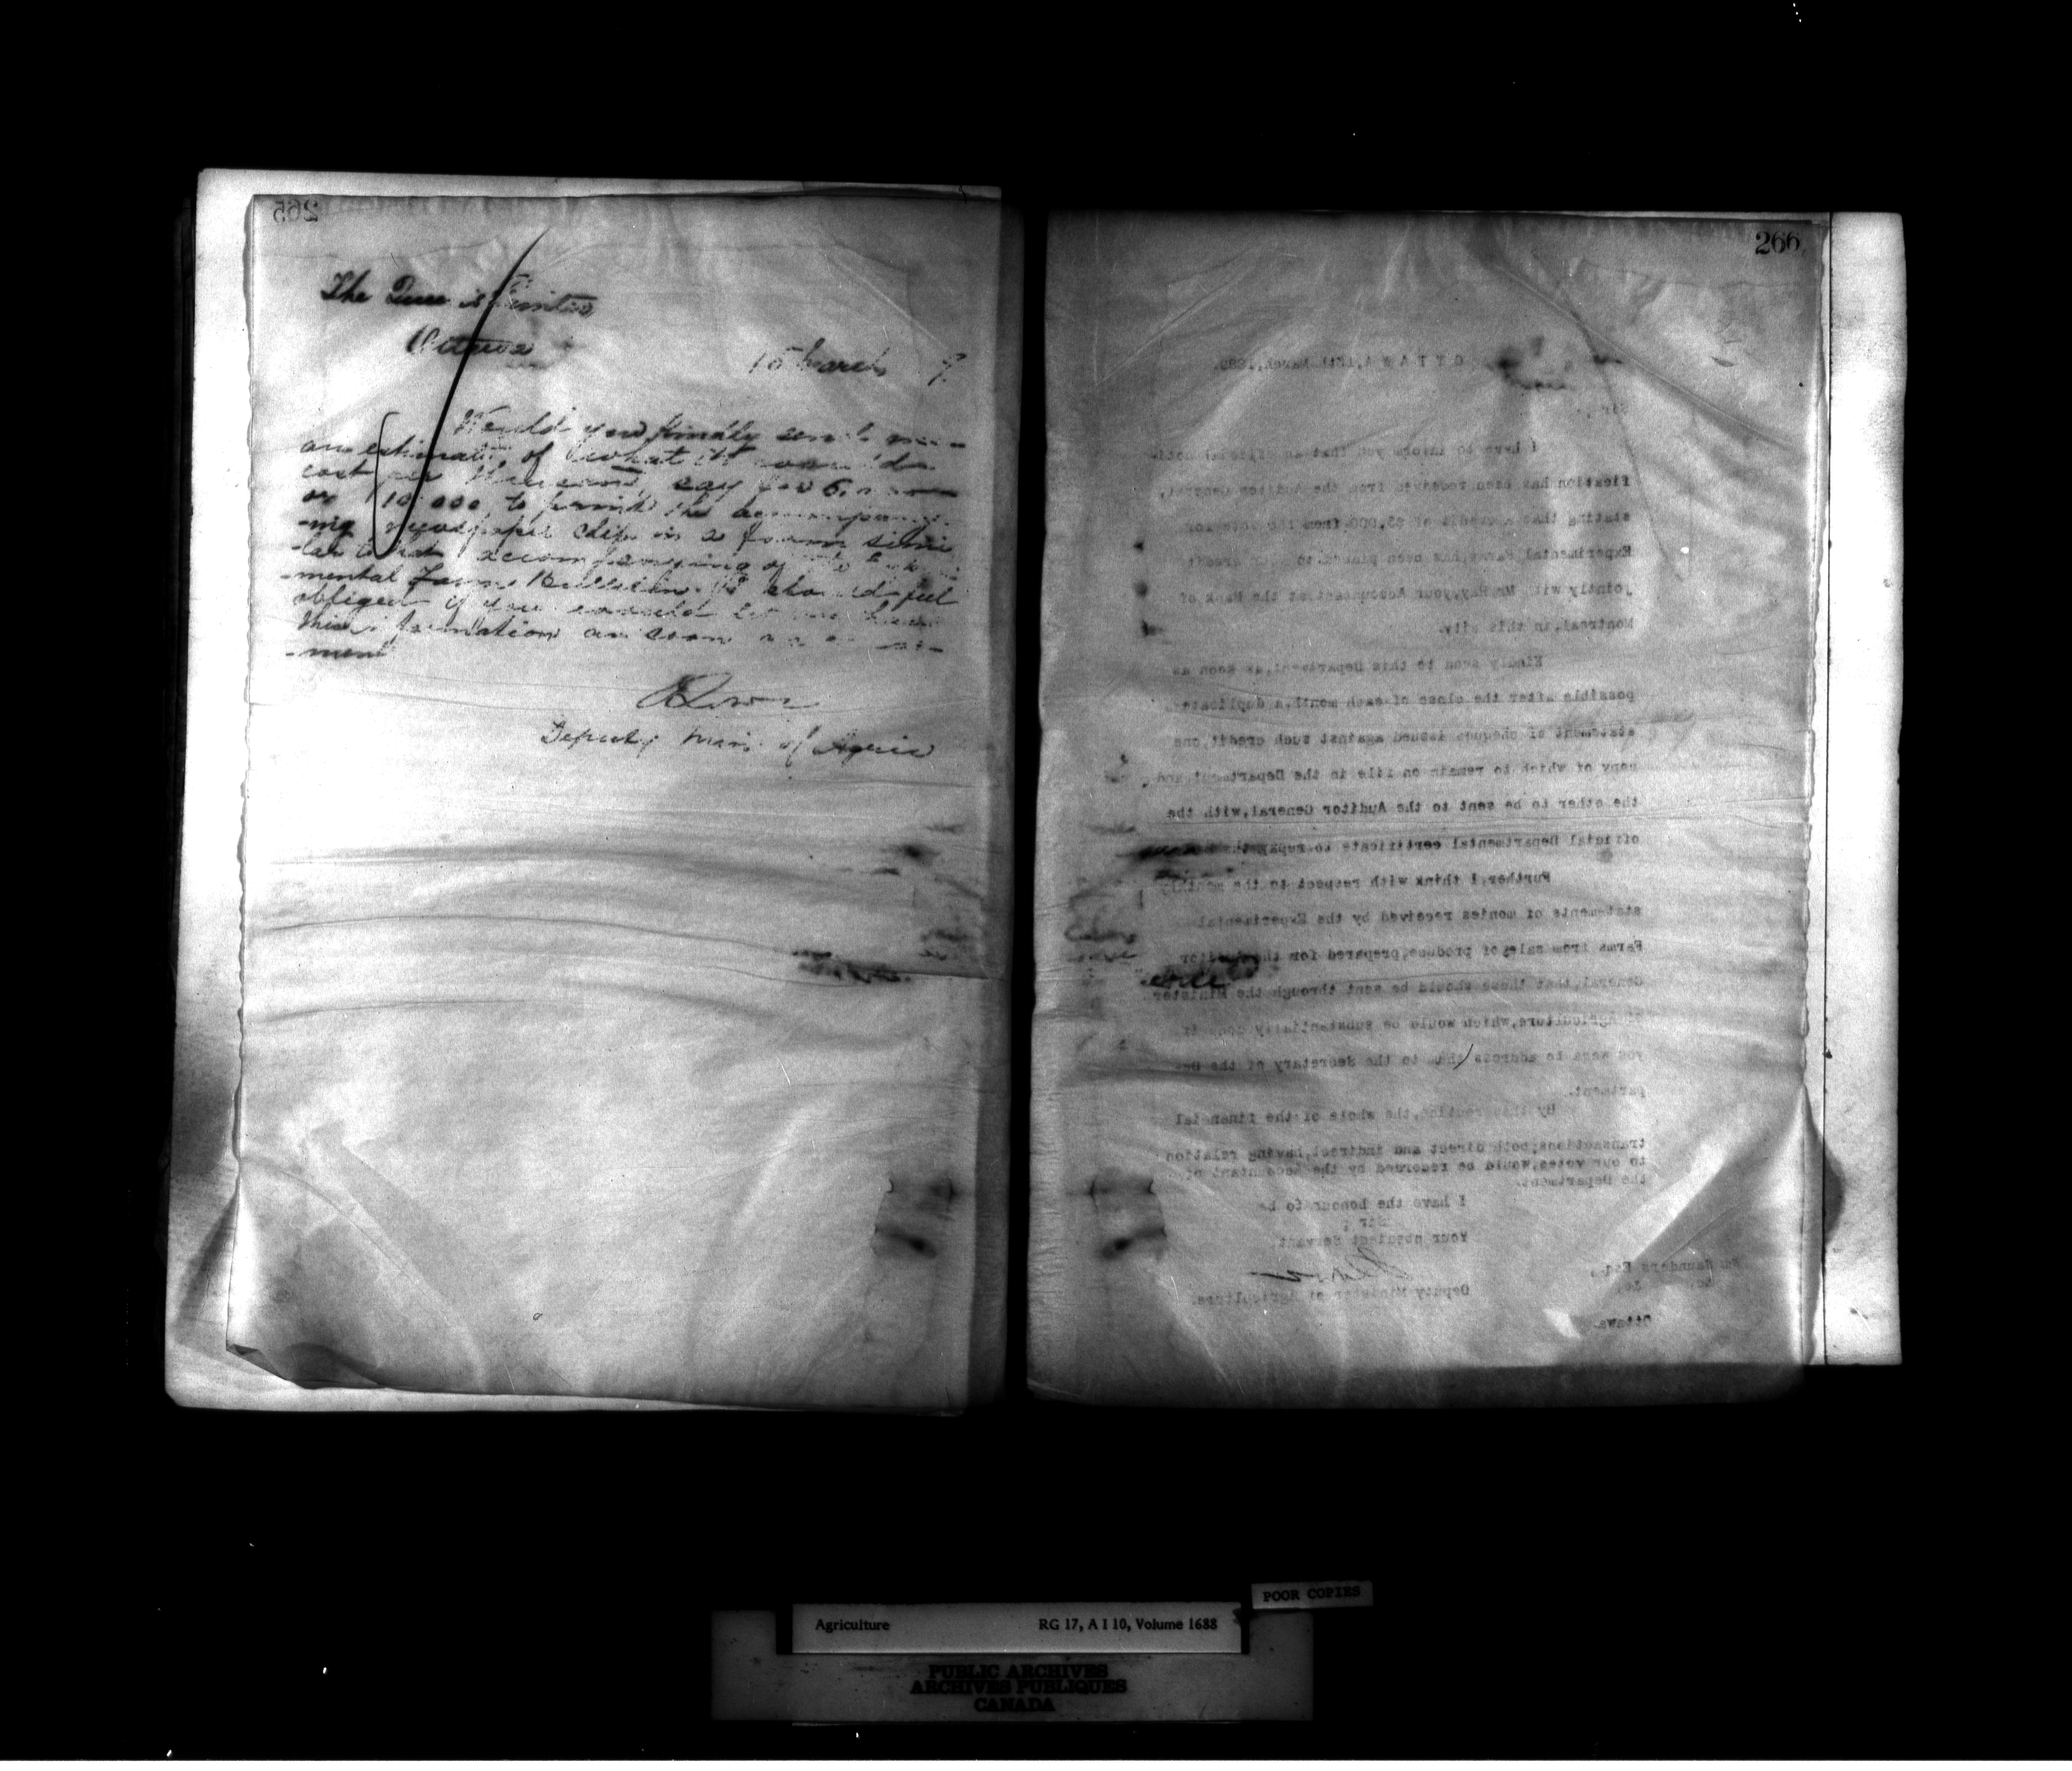 265
The Queen's Printer
Ottawa
15 March 9.
Would you kindly send me
an estimate of what it would
cost per thousand, say for 5,000
or 10 000, to print the accompany-
-ing newspaper clip in a form simi
-lar to that accompanying of the Experi
-mental Farm Bulletin. I should feel
obliged if you would let me have
this information as soon as
-ment
J Lowe
Deputy Min. of Agric
266
OTTAWA, 15th March, 1889.
Sir,
I have to inform you that an official noti-
fication has been received from the Auditor General,
stating that a credit of $3,000 from the vote for
Experimental Farms, has been placed to your credit
jointly with Mr. Hay, your Accountant at the Bank of
Montreal, in this city.
Kindly send to this Department, as soon as
possible after the close of each month, a duplicate
statement of cheques issued against such credit, one
copy of which to remain on file in the Department and
the other to be sent to the Auditor General, with the
official Departmental certificate
Further, I think with respect to the monthly
statements of monies received by the Experimental
Farms from sale of produce, prepared for the Auditor
General, that these should be sent through the Minister
of Agriculture, which would be substantially done if
you were to address them to the Secretary of the De-
partment.
By this routine, the whole of the financial
transactions, both direct and indirect, having relation
to our votes, would be recorded by the Accountant of
the Department.
I have the honour to be
Sir,
Your obedient Servant
J Lowe
Deputy Minister of Agriculture.
Wm Saunders Esq.,
&c. &c.
Ottawa.
POOR COPIES
Agriculture RG 17, A I 10, Volume 1688
PUBLIC ARCHIVES
ARCHIVES PUBLIQUES
CANADA